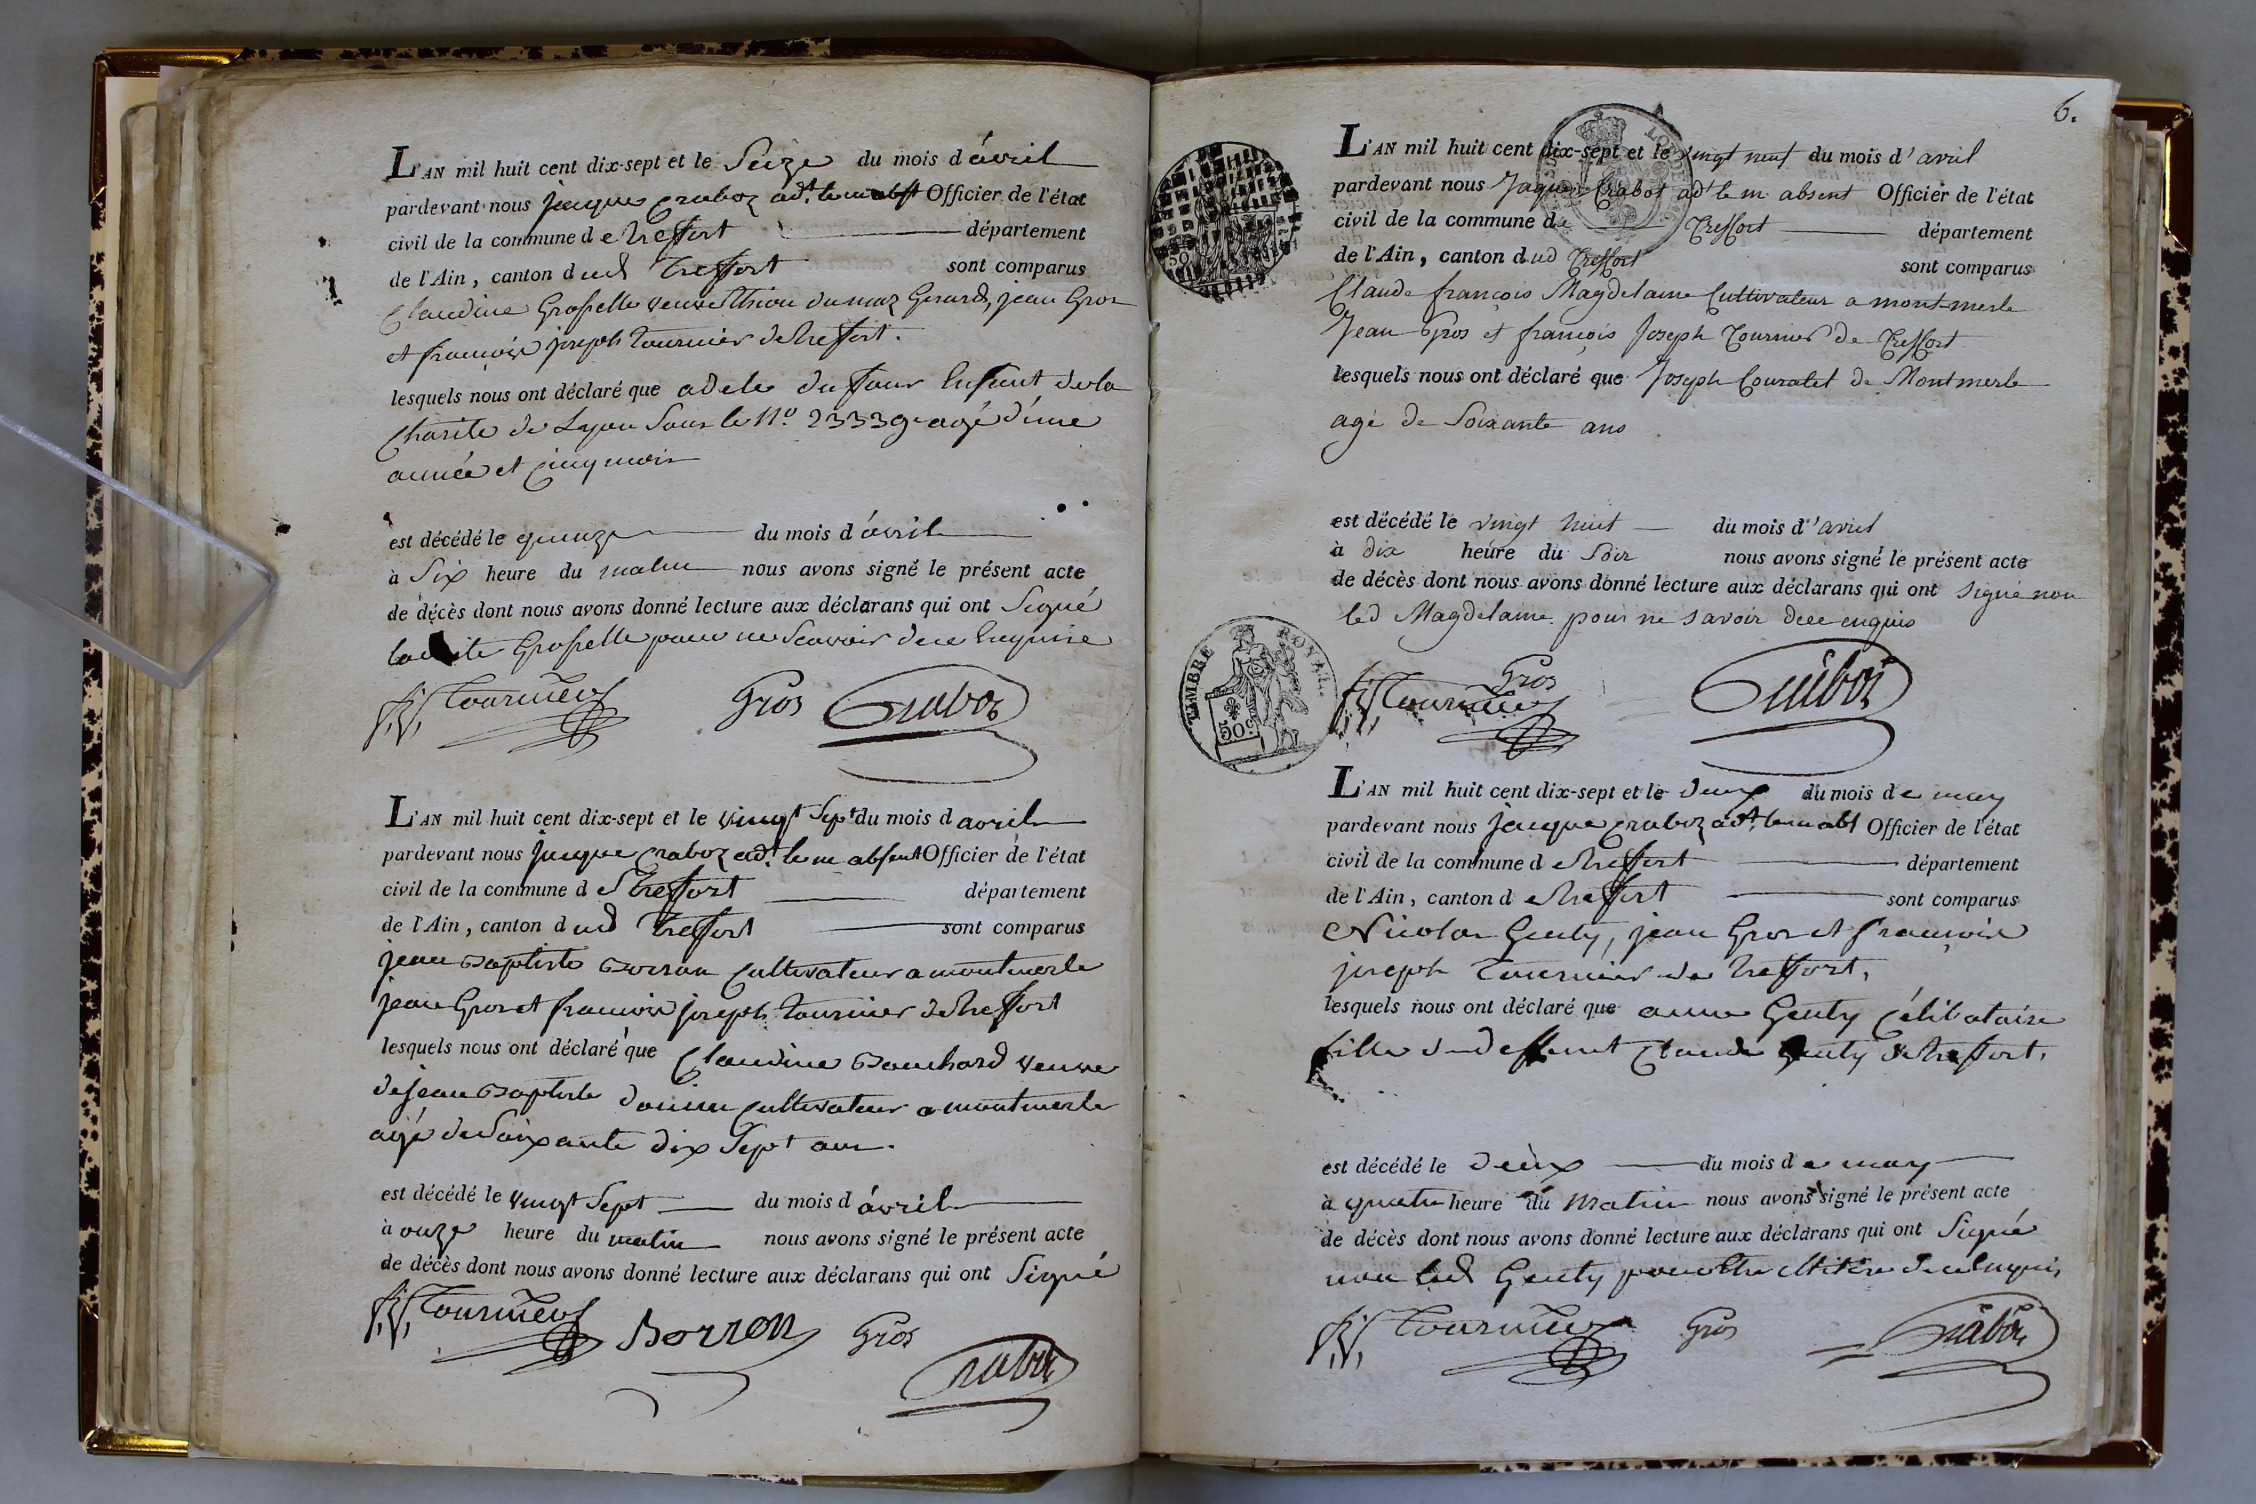 L'AN mil huit cent dix-sept et le Seize du mois d'avril
pardevant nous jacque craboz adt. le m abst Officier de l'état
civil de la commune de treffort département
de l'Ain, canton dud treffort sont comparus
Claudine Grosselle veuve du maz Gerard, jean Gros
et francois joseph tournier de treffort.
lesquels nous ont déclaré que adele du four Enfant de la
charite de Lyon Sous le No. 23339 agé d'une
année et cinq mois
est décédé le quinze du mois d'avril
à Six heure du matin nous avons signé le présent acte
de décès dont nous avons donné lecture aux déclarans qui ont Signé
ladite Grosselle pour ne scavoir de ce Enquise
f. j. Tournier Gros Craboz
L'AN mil huit cent dix-sept et le vingt Sept du mois d avril
pardevant nous jacque craboz adt. le m absent Officier de l'état
civil de la commune de treffort département
de l'Ain, canton dud treffort sont comparus
jean Baptiste Borron cultivateur a montmerle
jean Gros et francois joseph tournier de treffort
lesquels nous ont déclaré que Claudine Bouchard veuve
de jean Baptiste cultivateur a montmerle
agé de Soixante dix Sept ans.
est décédé le vingt Sept du mois d'avril
à onze heure du matin nous avons signé le présent acte
de décès dont nous avons donné lecture aux déclarans qui ont Signé
f. j. Tournier Borron Gros
Craboz
6.
L'AN mil huit cent dix-sept et le vingt neuf du mois d'avril
pardevant nous Jaques Crabot adt le m absent Officier de l'état
civil de la commune de Treffort département
de l'Ain, canton dud Treffort sont comparus
Claude françois Magdelaine Cultivateur a montmerle
Jean Gros et françois Joseph Tournier de Treffort
lesquels nous ont déclaré que Joseph Couratet de Montmerle
agé de Soixante ans
est décédé le vingt huit du mois d'avril
à dix heure du Soir nous avons signé le présent acte
de décès dont nous avons donné lecture aux déclarans qui ont signé non
led Magdelaine pour ne savoir de ce enquis
TIMBRE ROYAL
50c
Gros
f. j. Tournier Craboz
L'AN mil huit cent dix-sept et le deux du mois de may
pardevant nous jacque craboz adt. le m abst Officier de l'état
civil de la commune de treffort département
de l'Ain, canton de treffort sont comparus
Nicolas Genty, jean Gros et francois
joseph tournier de treffort,
lesquels nous ont déclaré que anne Genty Célibataire
fille de deffunt Claude Genty de treffort.
est décédé le deux du mois de may
à quatre heure du Matin nous avons signé le présent acte
de décès dont nous avons donné lecture aux déclarans qui ont Signé
non led Genty pour être illitéré de ce Enquis
f. j. Tournier Gros Craboz